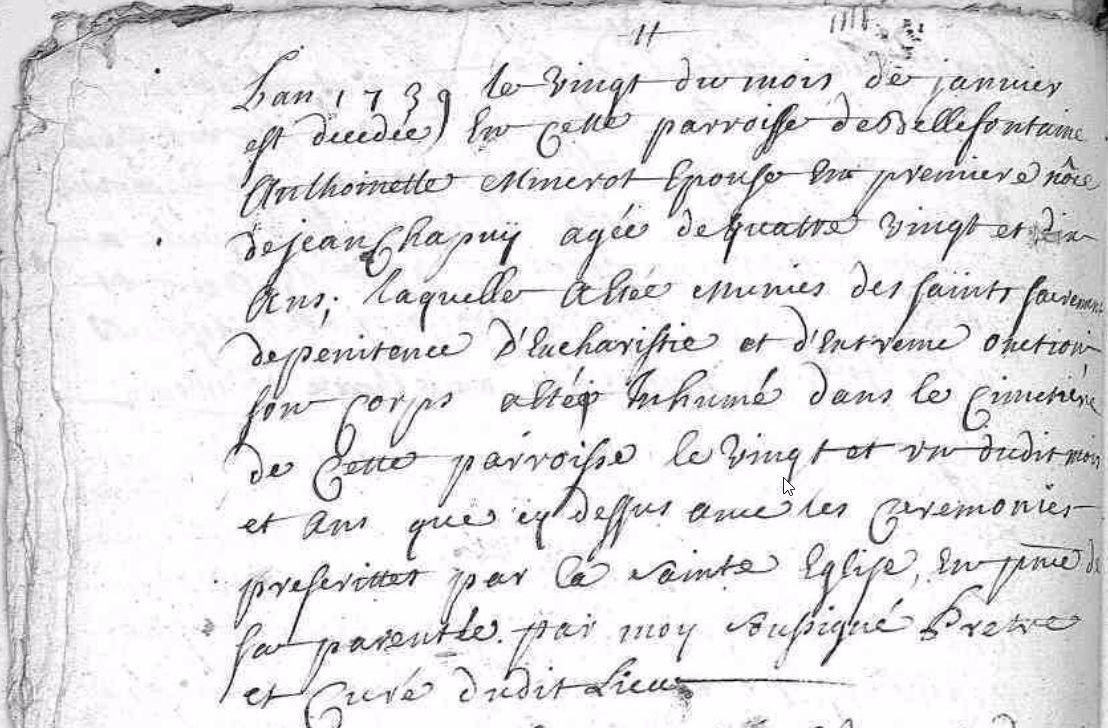 11
L'an 1739 le vingt du mois de janvier
est decedée En cette parroisse de Bellefontaine
Anthoinette Epouse En premiere nôce
de jean Chapuy agée de quattre vingt et dix
Ans; laquelle a Etée Munies des saints sacremens
de penitence d'Eucharistie et d'Extreme onction
son corps a été Inhumé dans le Cimetiére
de Cette parroisse le vingt et un dudit mois
et Ans que cy dessus avec les ceremonies
prescrittes par la sainte Eglise, En pnce de
sa parentée. par moy soussigné Pretre
et Curé dudit Lieu